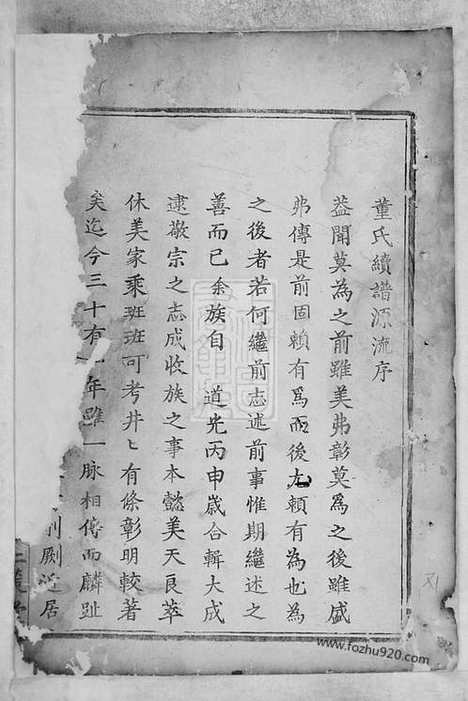 董氏續譜源流序
葢聞莫為之前雖美弗彰莫爲之後雖盛
弗傳是前固賴有爲而後尤賴有為也為
之後者若何繼前志述前事惟期繼述之
善而已余族自 道光丙申歲合輯大成
逮敬宗之志成收族之事本懿美天良萃
休美家乘班班可考井〻有條彰明較著
矣迄今三十有 年雖一脉相傳而麟趾
居
www.fozhu920.com